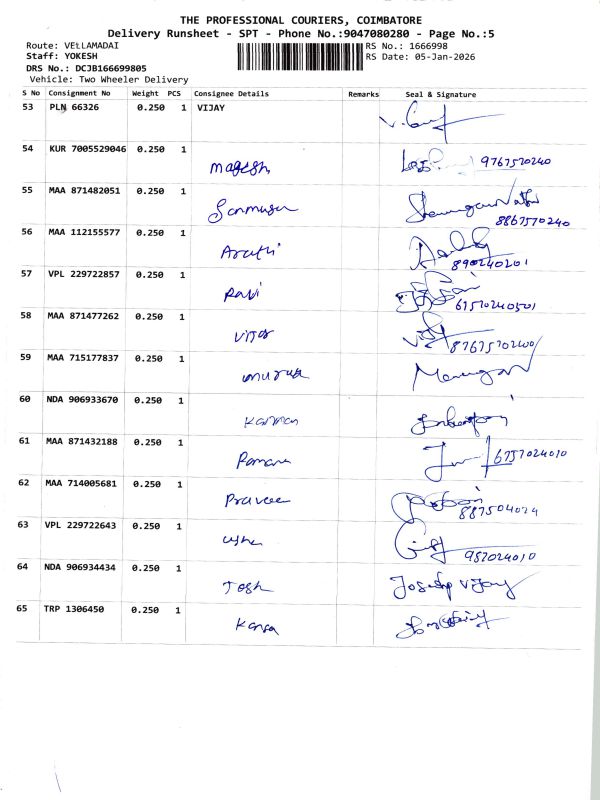 THE PROFESSIONAL COURIERS, COIMBATORE
Delivery Runsheet - SPT - Phone No.:9047080280 - Page No.:5
Route: VELLAMADAI RS No.: 1666998
Staff: YOKESH RS Date: 05-Jan-2026
DRS No.: DCJB166699805
Vehicle: Two Wheeler Delivery
S No Consignment No Weight PCS Consignee Details Remarks Seal & Signature
53 PLN 66326 0.250 1 VIJAY
54 KUR 7005529046 0.250 1 Magesh 9767570240
55 MAA 871482051 0.250 1 Sanmugan 8867570240
56 MAA 112155577 0.250 1 Arathi 890240201
57 VPL 229722857 0.250 1 Ravi 67570240501
58 MAA 871477262 0.250 1 Vijay
59 MAA 715177837 0.250 1 Murugan
60 NDA 906933670 0.250 1 Kannan
61 MAA 871432188 0.250 1 6757024010
62 MAA 714005681 0.250 1 Pravee 887504024
63 VPL 229722643 0.250 1 Usha 957024010
64 NDA 906934434 0.250 1 Tosh Joseph Vijay
65 TRP 1306450 0.250 1